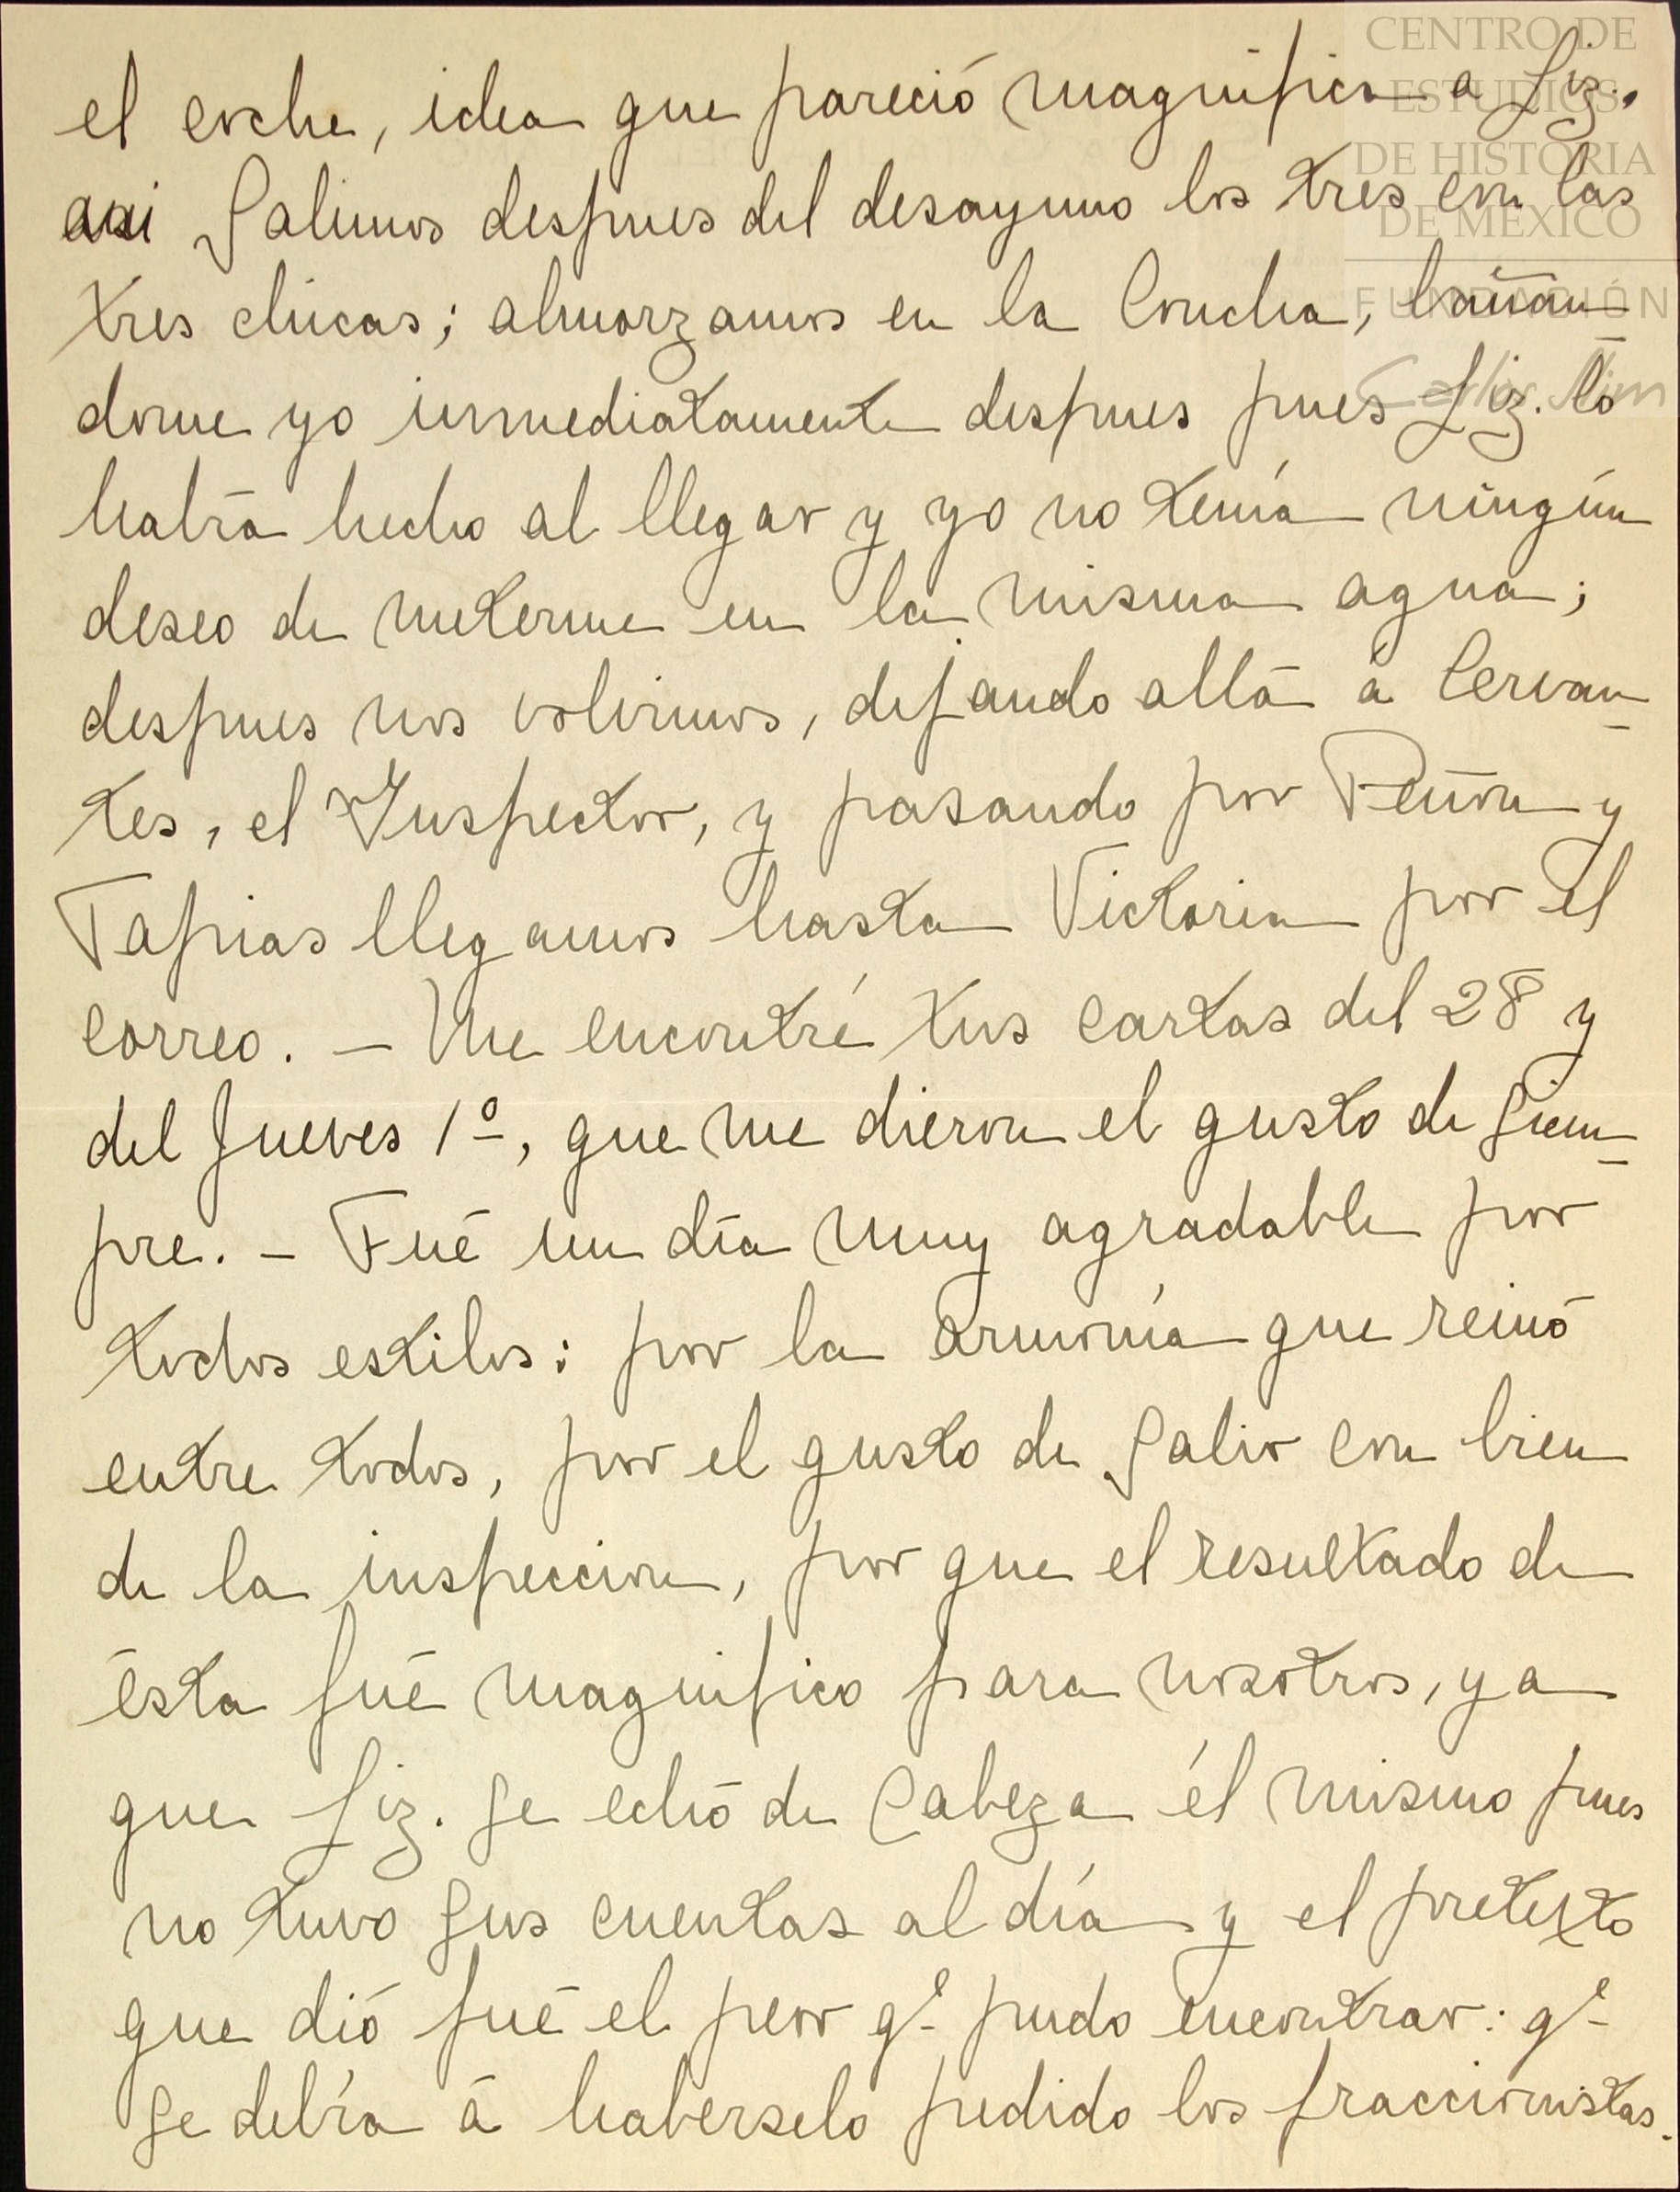 CENTRO DE
ESTUDIOS
DE HISTORIA
DE MÉXICO
FUNDACIÓN
Carlos Slim
el coche, idea que pareció magnifica a Liz.,
asi Salimos despues del desayuno los tres con las
tres chicas; almorzamos en la Concha, bañan-
dome yo inmediatamente despues pues Liz. lo
había hecho al llegar y yo no tenía ningún
deseo de meterme en la misma agua;
despues nos volvimos, dejando allá á Cervan-
tes, el Inspector, y pasando por Peñon y
Tapias llegamos hasta Victoria por el
correo. — Me encontré tus cartas del 28 y
del Jueves 1º, que me dieron el gusto de Siem-
pre. — Fué un día muy agradable por
todos estilos: por la armonía que reinó
entre todos, por el gusto de Salir con bien
de la inspeccion, por que el resultado de
ésta fué magnifico para nosotros, ya
que Liz. Se echó de Cabeza él mismo pues
no tuvo Sus cuentas al día y el pretexto
que dió fué el peor qe pudo encontrar: qe
Se debía á haberselo pedido los fraccionistas.